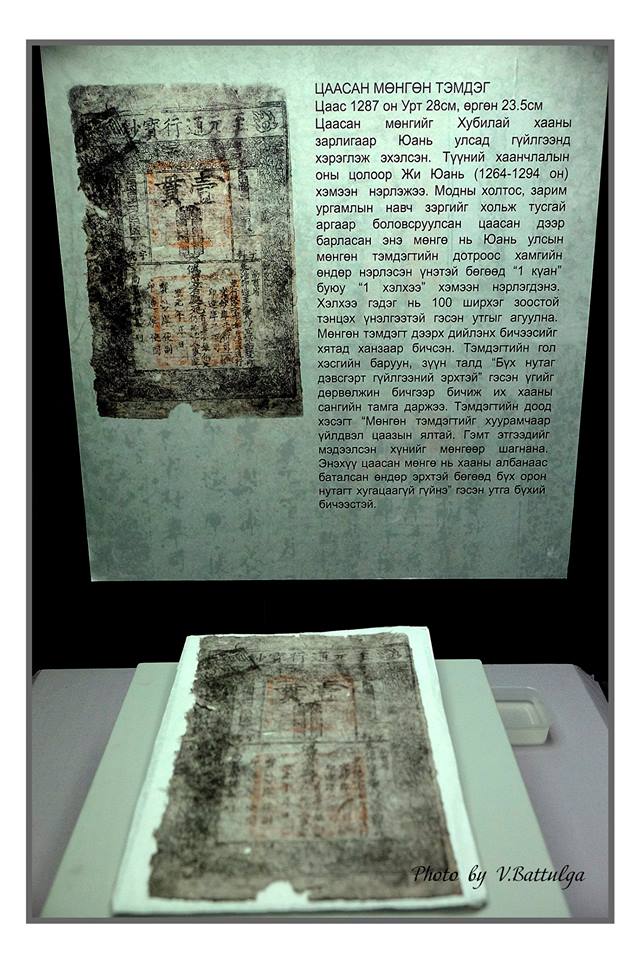 ЦААСАН МӨНГӨН ТЭМДЭГ
Цаас 1287 он Урт 28см, өргөн 23.5см
Цаасан мөнгийг Хубилай хааны
зарлигаар Юань улсад гүйлгээнд
хэрэглэж эхэлсэн. Түүний хаанчлалын
оны цолоор Жи Юань (1264-1294 он)
хэмээн нэрлэжээ. Модны холтос, зарим
ургамлын навч зэргийг хольж тусгай
аргаар боловсруулсан цаасан дээр
барласан энэ мөнгө нь Юань улсын
мөнгөн тэмдэгтийн дотроос хамгийн
өндөр нэрлэсэн үнэтэй бөгөөд “1 куан”
буюу “1 хэлхээ” хэмээн нэрлэгдэнэ.
Хэлхээ гэдэг нь 100 ширхэг зоостой
тэнцэх үнэлгээтэй гэсэн утгыг агуулна.
Мөнгөн тэмдэгт дээрх дийлэнх бичээсийг
хятад ханзаар бичсэн. Тэмдэгтийн гол
хэсгийн баруун, зүүн талд “Бүх нутаг
дэвсгэрт гүйлгээний эрхтэй” гэсэн үгийг
дөрвөлжин бичгээр бичиж их хааны
сангийн тамга даржээ. Тэмдэгтийн доод
хэсэгт “Мөнгөн тэмдэгтийг хуурамчаар
үйлдвэл цаазын ялтай. Гэмт этгээдийг
мэдээлсэн хүнийг мөнгөөр шагнана.
Энэхүү цаасан мөнгө нь хааны албанаас
баталсан өндөр эрхтэй бөгөөд бүх орон
нутагт хугацаагүй гүйнэ” гэсэн утга бүхий
бичээстэй.
鈔寶行通元至
貫壹
Photo by V.Battulga